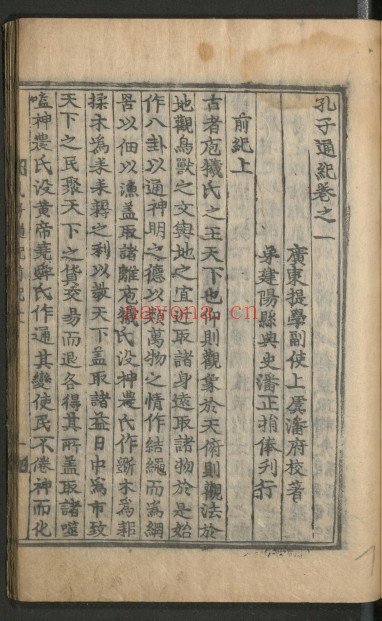 孔子通紀卷之一
廣東提學副使上虞潘府校著
建陽縣典史潘正捐俸刊行
前紀上
古者庖犧氏之王天下也仰則觀象於天俯則觀法於
地觀鳥獸之文與地之宜近取諸身遠取諸物於是始
作八卦以通神明之德以類萬物之情作結繩而為網
罟以佃以漁盖取諸離庖犧氏没神農氏作斲木為耜
揉木為耒耒耨之利以教天下盖取諸益日中為市致
天下之民聚天下之貨交易而退各得其所盖取諸噬
嗑神農氏没黄帝堯舜氏作通其變使民不倦神而化
nayona.cn